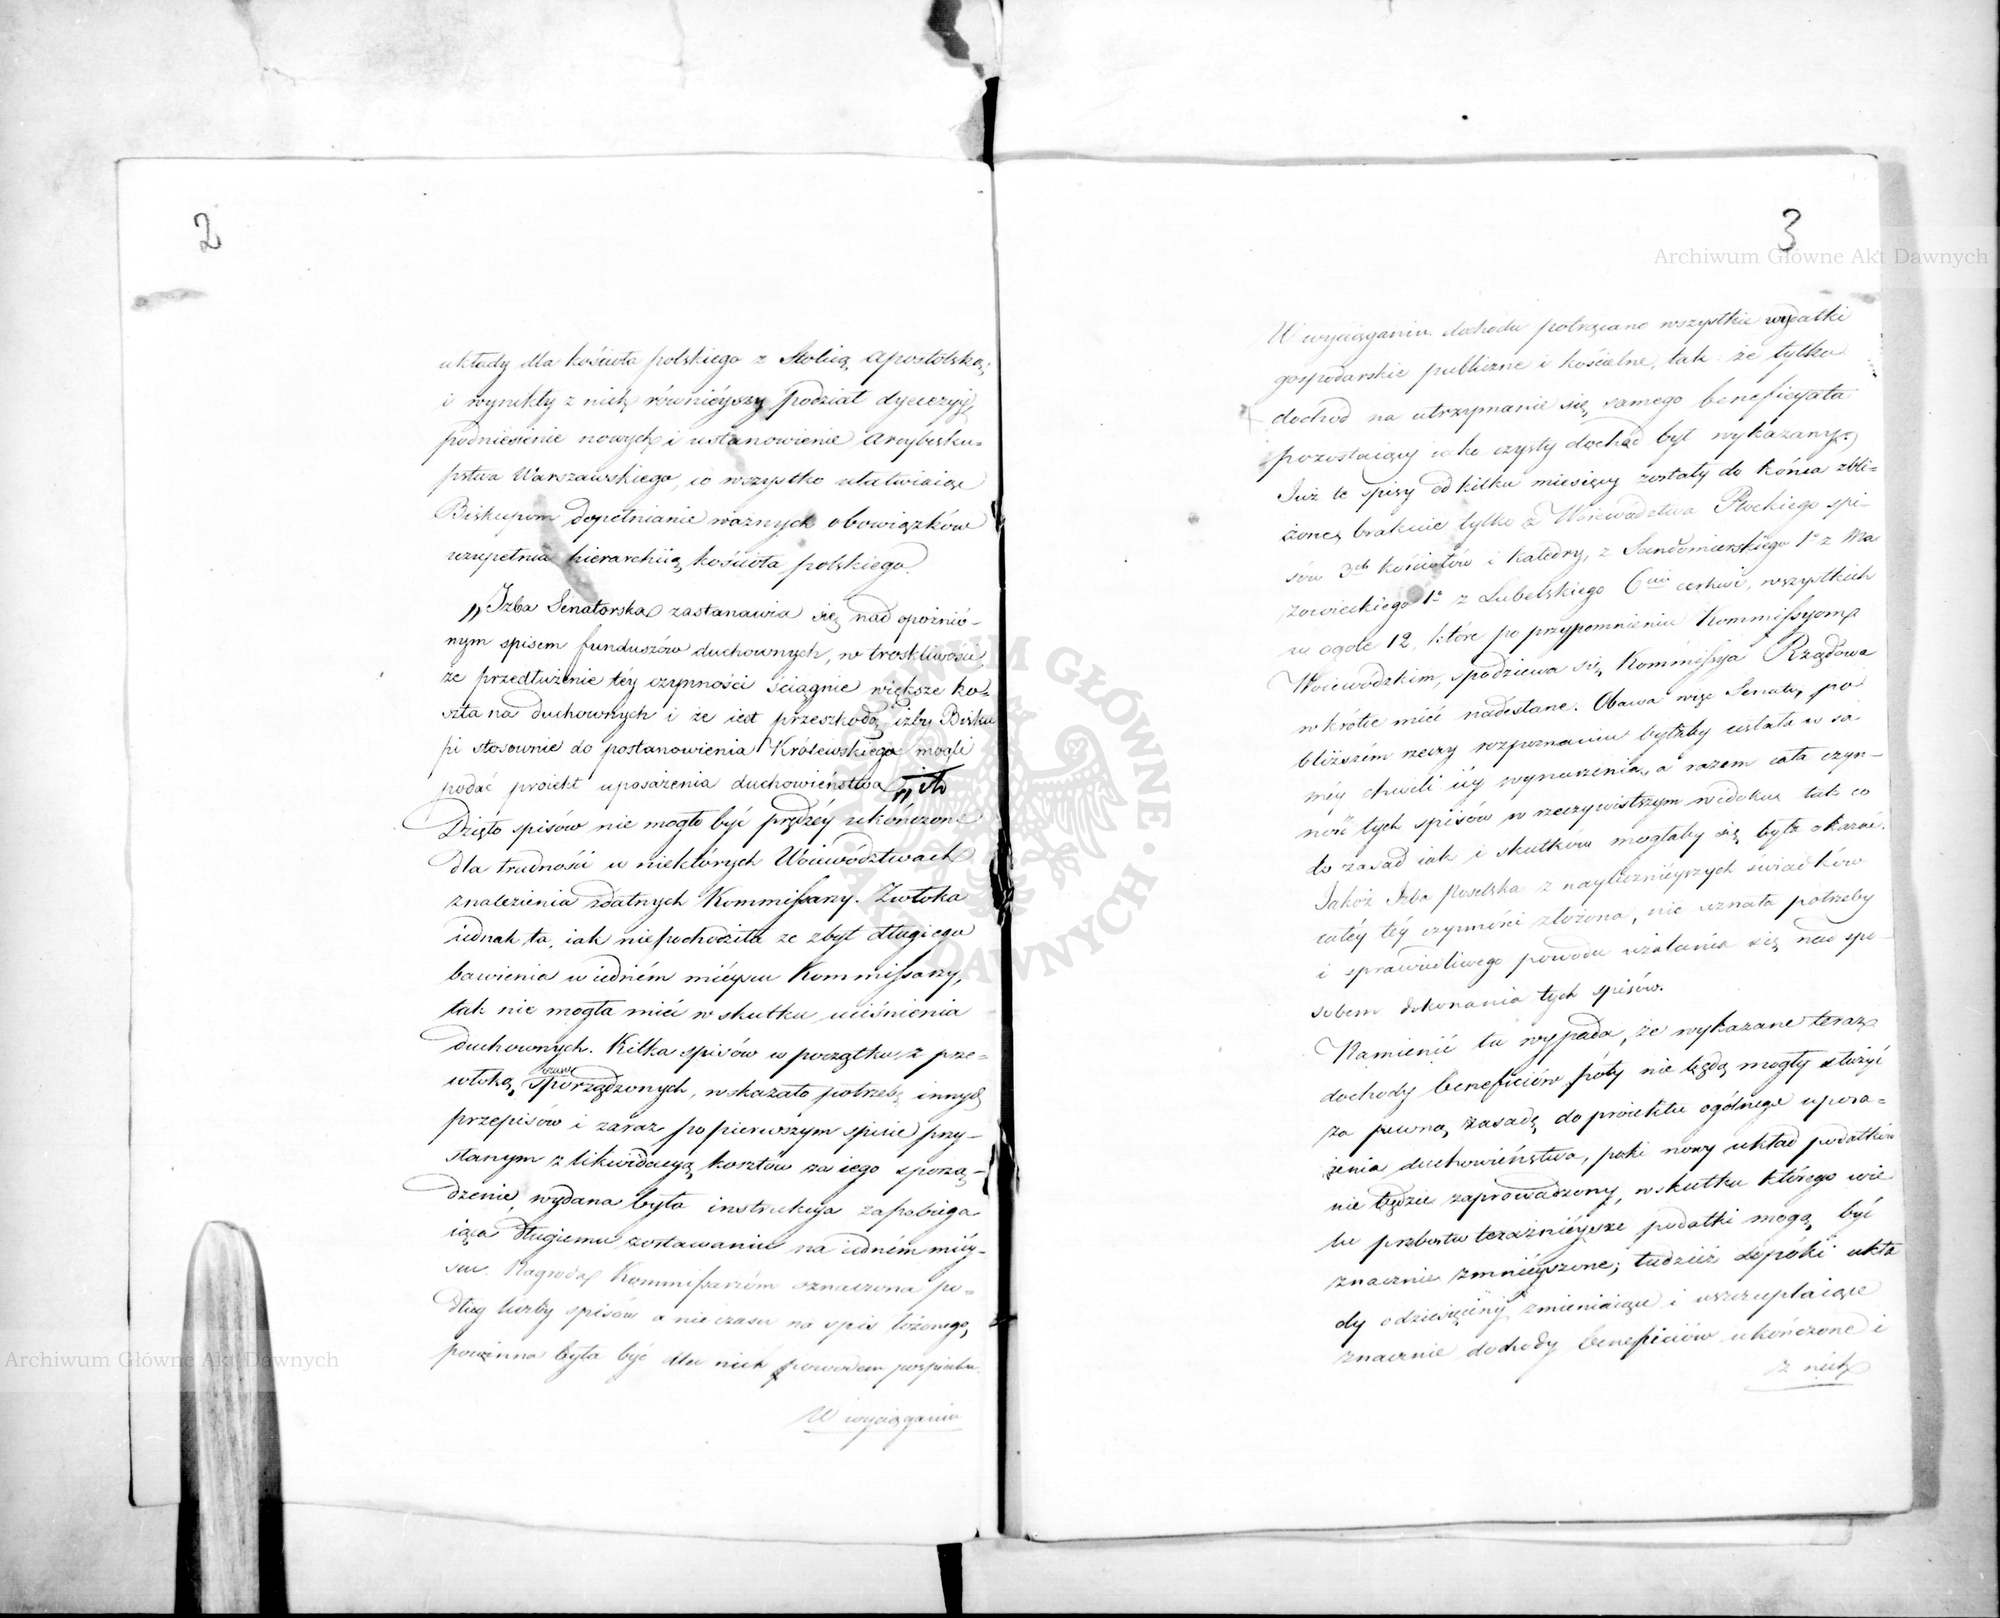 2
układy dla kościoła polskiego z Stolicą Apostolską,
i wynikły z nich równieyszy podział dyecezyi,
podniesienie nowych i ustanowienie Arcybisku-
pstwa Warszawskiego, co wszystko ułatwiaiąc
Biskupom dopełnianie ważnych obowiązków
uzupełnia hierarchiią kościoła polskiego.
„Izba Senatorska zastanawia się nad opóźnio-
nym spisem funduszów duchownych, w troskliwości,
że przedłużenie téy czynności ściągnie większe ko-
szta na duchownych i że iest przeszkodą, iżby Bisku
pi stosownie do postanowienia Królewskiego mogli
podać proiekt uposażenia duchowieństwa„
Dzieło spisów nie mogło być prędzéy ukończone
dla trudności w niektórych Woiewództwach
znalezienia zdatnych Kommissarzy. Zwłoka
iednak ta, iak nie pochodziła ze zbyt długiego
bawienia w iedném mieyscu Kommissarzy,
tak nie mogła mieć w skutku uciśnienia
duchownych. Kilka spisów w początku z prze-
włoką sporządzonych, wskazało potrzebę innych
przepisów i zaraz po pierwszym spisie przy-
słanym z likwidacyą kosztów za iego sporzą-
dzenie, wydana była instrukcya zapobiega
iąca długiemu zostawaniu na iedném miéy-
scu. Nagroda Kommissarzom oznaczona po-
dług liczby spisów a nie czasu na spis łożonego,
powinna była być dla nich powodem pośpiechu.
W wyciąganiu
3
W wyciąganiu dochodu potrącano wszystkie wydatki
gospodarskie publiczne i kościelne, tak że tylko
dochód na utrzymanie się samego beneficyata
pozostaiący iako czysty dochód był wykazany.
Już te spisy od kilku miesięcy zostały do końca zbli-
żone, brakuie tylko z Woiewództwa Płockiego spi-
sów 3ch kościołów i katedry, z Sandomierskiego 1o z Ma
zowieckiego 1o z Lubelskiego 6ciu cerkwi, wszystkich
w ogóle 12, które po przypomnieniu Kommissyom
Woiewódzkim, spodziewa się Kommissya Rządowa
w krótce mieć nadesłane. Obawa więc Senatu, po
bliższém rzeczy rozpoznaniu byłaby ustała w sa
méy chwili iéy wynurzenia, a razem cała czyn-
ność tych spisów w rzeczywistszym widoku tak co
do zasad iak i skutków mogłaby się była okazać.
Jakoż Izba Poselska z naylicznieyszych świadków
całéy téy czynności złożona, nie uznała potrzeby
i sprawiedliwego powodu użalania się nad spo-
sobem dokonania tych spisów.
Namienić tu wypada, że wykazane teraz
dochody beneficiów póty nie będą mogły służyć
za pewną zasadę do proiektu ogólnego uposa-
żenia duchowieństwa, póki nowy układ podatków
nie będzie zaprowadzony, w skutku którego wie
lu probostw teraźnieysze podatki mogą być
znacznie zmnieyszone; tudzież dopóki ukła
dy o dziesięciny zmieniaiące i uszczuplaiące
znacznie dochody beneficiów ukończone i
z nich
Archiwum Główne Akt Dawnych
Archiwum Główne Akt Dawnych
ARCHIWUM GŁÓWNE · AKT DAWNYCH ·